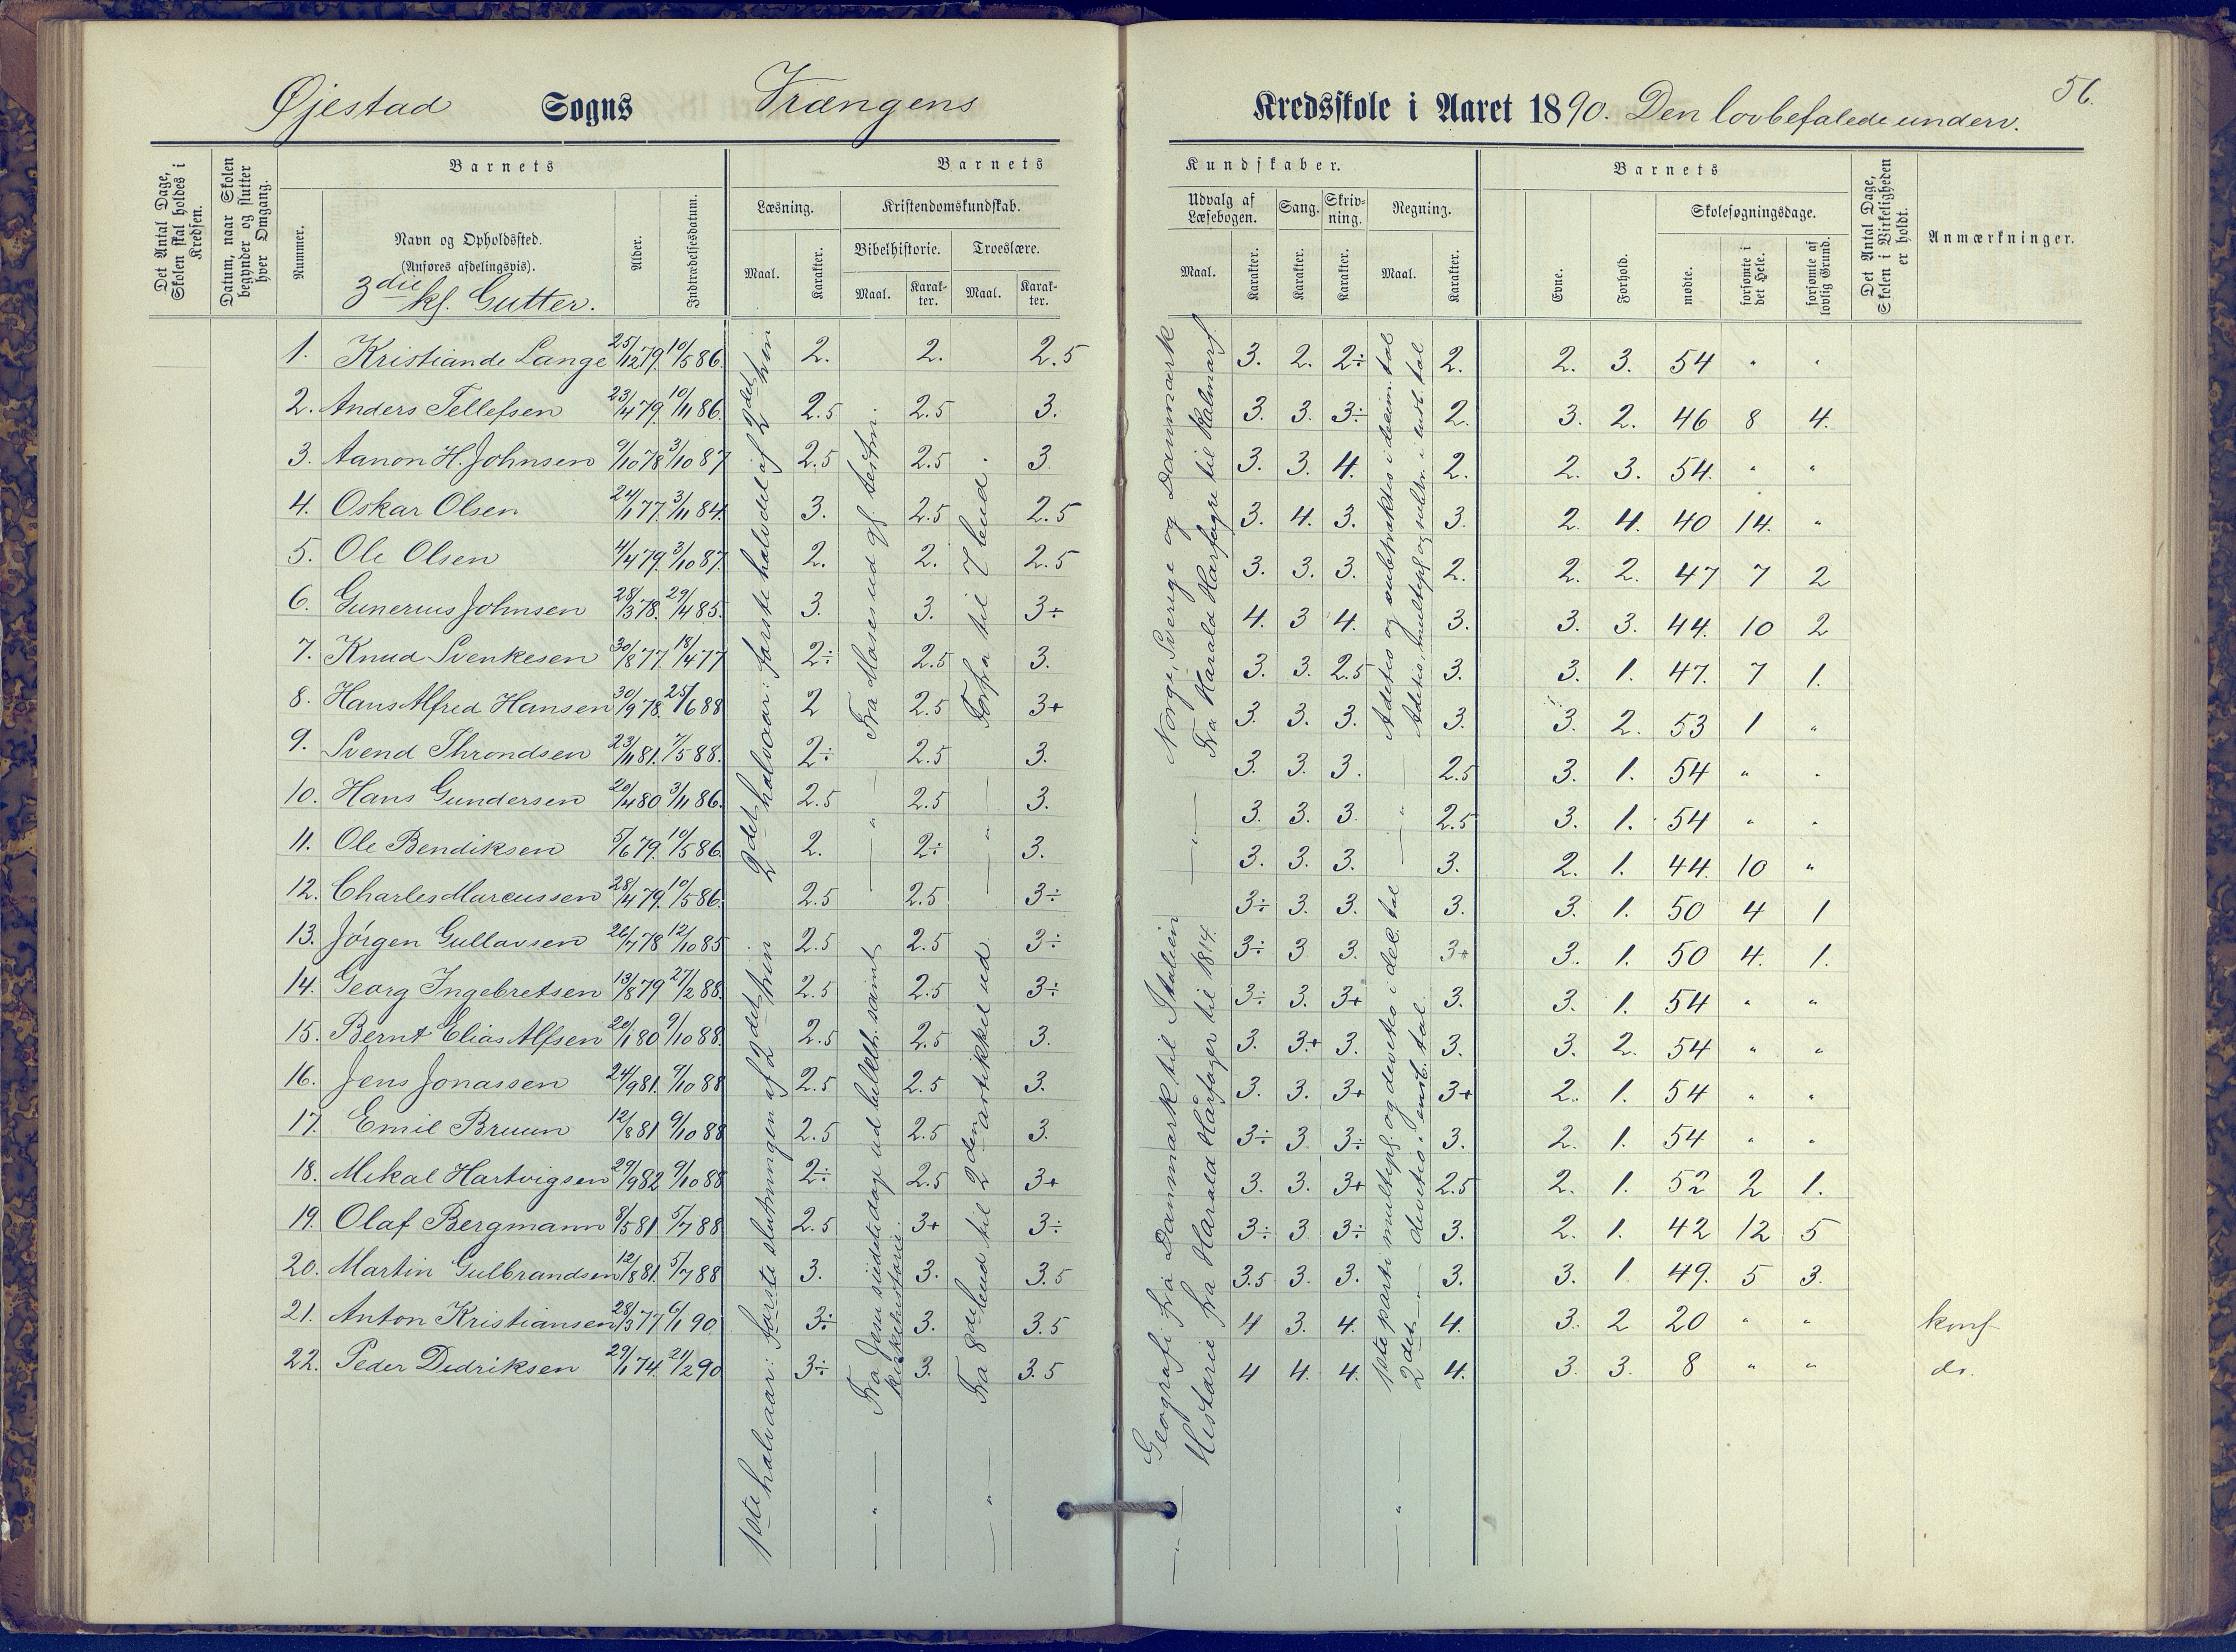 Øjestad Sogns Vrængens Kredsskole i Aaret 1890. Den lovbefalede underv.
56.
Det Antal Dage, Skolen skal holdes i Kredsen.
Datum, naar Skolen begynder og slutter hver Omgang.
Barnets
Nummer.
Navn og Opholdssted.
(Anføres afdelingsvis).
3die kl. Gutter.
Alder.
Indtrædelsesdatum.
Barnets Kundskaber.
Læsning.
Maal.
Karakter.
Kristendomskundskab.
Bibelhistorie.
Maal.
Karakter.
Troeslære.
Maal.
Karakter.
Udvalg af Læsebogen.
Maal.
Karakter.
Sang.
Karakter.
Skrivning.
Karakter.
Regning.
Maal.
Karakter.
Barnets
Evne.
Forhold.
Skolesøgningsdage.
mødte.
forsømte i det Hele.
forsømte af lovlig Grund.
Det Antal Dage, Skolen i Virkeligheden er holdt.
Anmærkninger.
1. Kristian de Lange 25/12 79. 10/5 86. 2. 2. 2.5 3. 2. 2÷ 2. 2. 3. 54 " "
2. Anders Tellefsen 23/4 79. 10/11 86. 2.5 2.5 3. 3. 3. 3÷ 2. 3. 2. 46 8 4.
3. Aanon H. Johnsen 9/10 78 3/10 87 2.5 2.5 3. 3. 3. 4. 2. 2. 3. 54. " "
4. Oskar Olsen 24/1 77. 3/11 84. 3. 2.5 2.5 3. 4. 3. 3. 2. 4. 40 14. "
5. Ole Olsen 4/4 79. 3/10 87. 2. 2. 2.5 3. 3. 3. 2. 2. 2. 47 7 2
6. Gunerius Johnsen 28/3 78. 29/4 85. 3. 3. 3÷ 4. 3 4. 3. 3. 3. 44. 10 2
7. Knud Svenkesen 30/8 77. 18/4 77 2÷ 2.5 3. 3. 3. 2.5 3. 3. 1. 47. 7 1.
8. Hans Alfred Hansen 30/9 78. 25/6 88 2 2.5 3+ 3. 3. 3. 3. 3. 2. 53 1 "
9. Svend Throndsen 23/11 81. 7/5 88. 2÷ 2.5 3. 3. 3. 3. 2.5 3. 1. 54 " "
10. Hans Gundersen 20/4 80 3/11 86. 2.5 2.5 3. 3. 3. 3. 2.5 3. 1. 54 " "
11. Ole Bendiksen 5/6 79. 10/5 86. 2. 2÷ 3. 3. 3. 3. 3. 2. 1. 44. 10 "
12. Charles Marcussen 28/4 79. 10/5 86. 2.5 2.5 3÷ 3÷ 3. 3. 3. 3. 1. 50 4 1
13. Jörgen Gullavsen 26/7 78 12/10 85 2.5 2.5 3÷ 3÷ 3 3. 3+ 3. 1. 50 4. 1.
14. Georg Ingebretsen 13/8 79 27/2 88. 2.5 2.5 3÷ 3÷ 3. 3+ 3. 3. 1. 54 " "
15. Bernt Elias Alfsen 20/1 80 9/10 88. 2.5 2.5 3. 3. 3.+ 3. 3. 3. 2. 54 " "
16. Jens Jonassen 24/9 81. 9/10 88 2.5 2.5 3. 3. 3. 3+ 3+ 2. 1. 54 " "
17. Emil Bruun 12/8 81 9/10 88 2.5 2.5 3. 3÷ 3. 3÷ 3. 2. 1. 54 " "
18. Mikal Hartvigsen 29/9 82 9/10 88 2÷ 2.5 3+ 3. 3. 3+ 2.5 2. 1. 52 2 1.
19. Olaf Bergmann 8/5 81 5/7 88 2.5 3+ 3÷ 3÷ 3 3÷ 3. 2. 1. 42 12 5
20. Martin Gulbrandsen 12/8 81. 5/7 88 3. 3. 3.5 3.5 3. 3. 3. 3. 1. 49. 5 3.
21. Anton Kristiansen 28/3 77 6/1 90 3÷ 3. 3.5 4 3. 4. 4. 3. 2 20 " " konf
22. Peder Didriksen 29/1 74. 21/2 90 3÷ 3. 3.5 4 4. 4. 4. 3. 3. 8 " " do.
1ste halvaar: første slutningen af 2det trin
2det halvaar: første halvdel af 2det trin
Fra Jesu sidste dage ud bibelh. samt kirkehistorie.
Fra Moses ud gl. testm.
Fra 8de bud til 2den artikkel ud
Forfra til 7 bud.
Geografi fra Danmark til Italien
Historie fra Harald Hårfager til 1814.
Norge, Sverige og Danmark
Fra Harald Harfagre til Kalmarf.
1ste parti multipl. og divitio i del. tal
2det " divitio i enst. tal.
Aditio og subtraktio i decim. tal
Aditio, multipl. og subtr. i enst. tal